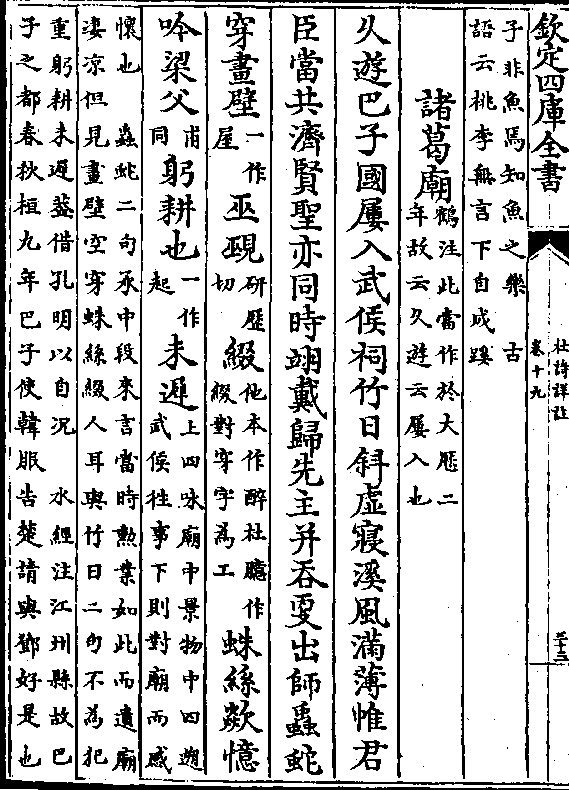 欽定四庫全書
杜詩詳註
卷十九
二十三
子非魚焉知魚之樂 古
語云桃李無言下自成蹊
諸葛廟
鶴注此當作於大厯二
年故云久遊云屢入也
久遊巴子國屢入武侯祠竹日斜虛寢溪風滿薄帷君
臣當共濟賢聖亦同時翊戴歸先主并吞更出師蟲蛇
穿畫壁
一作
屋
巫覡
研歷
切
綴
他本作醉杜臆作
綴對穿字為工
蛛絲歘憶
吟梁父
甫
同
躬耕也
一作
起
未遲
上四咏廟中景物中四遡
武侯徃事下則對廟而感
懷也 蟲蛇二句承中段來言當時勲業如此而遺廟
凄凉但見畫壁空穿蛛絲綴人耳與竹日二句不為犯
重躬耕未遲葢借孔明以自况 水經注江州縣故巴
子之都春秋桓九年巴子使韓服告楚請與鄧好是也